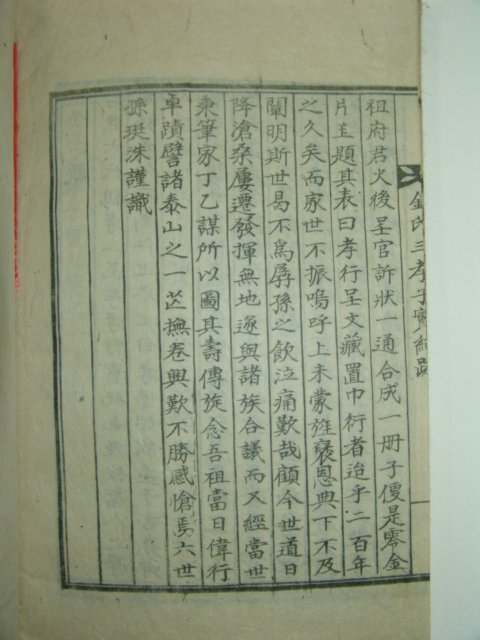 金氏三孝子實紀跋
祖府君火後呈官訴狀一通合成一册子僾是零金
片玉題其表曰孝行呈文藏置巾衍者迨乎二百年
之久矣而家世不振嗚呼上未蒙旌褒恩典下不及
闡明斯世曷不爲孱孫之飮泣痛歎哉顧今世道日
降滄桑屢遷發揮無地遂與諸族合議而又經當世
秉筆家丁乙謀所以圖其壽傳旋念吾祖當日偉行
卓蹟譬諸泰山之一芒撫卷興歎不勝感愴焉六世
孫珽洙謹識